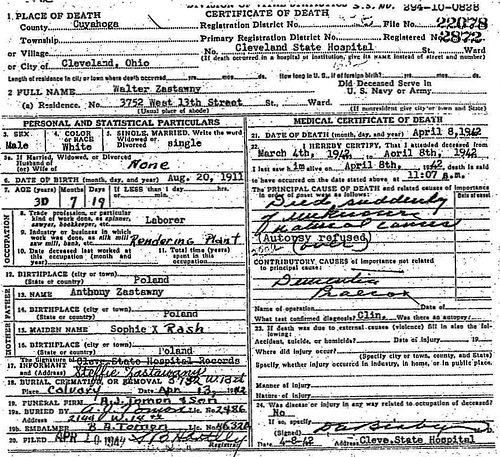 DIVISION OF VITAL STATISTICS S.S. No. 294-10-0828
CERTIFICATE OF DEATH
1. PLACE OF DEATH
County Cuyahoga
Registration District No.
File No. 22078
Township
Primary Registration District No.
Registered No. 2872
or Village
No. Cleveland State Hospital St., Ward
(If death occurred in a hospital or institution, give its NAME instead of street and number)
or City of Cleveland, Ohio
Length of residence in city or town where death occurred yrs. mos. ds. How long in U. S. if of foreign birth? yrs. mos. ds.
2 FULL NAME Walter Zastawny
Did Deceased Serve in U. S. Navy or Army
(a) Residence. No. 3752 West 13th Street St., Ward.
(Usual place of abode)
(If nonresident give city or town and State)
PERSONAL AND STATISTICAL PARTICULARS
3. SEX
Male
4. COLOR or RACE
White
5. SINGLE, MARRIED, Write the word
Widowed or Divorced
single
5a. If Married, Widowed, or Divorced
Husband of
(or) Wife of
None
6. DATE OF BIRTH (month, day, and year) Aug. 20, 1911
7. AGE (years)
30
7
19
If LESS than 1 day, hrs. or min.
OCCUPATION
8. Trade, profession, or particular kind of work done, as spinner, sawyer, bookkeeper, etc.
Laborer
9. Industry or business in which work was done, as silk mill, saw mill, bank, etc.
Rendering Plant
10. Date deceased last worked at this occupation (month and year)
11. Total time (years) spent in this occupation
12. BIRTHPLACE (city or town)
(State or country)
Poland
FATHER
13. NAME Anthony Zastawny
14. BIRTHPLACE (city or town)
(State or country)
Poland
MOTHER
15. MAIDEN NAME Sophie Rash
16. BIRTHPLACE (city or town)
(State or country)
Poland
The Signature of Cleve. State Hospital Records
17. INFORMANT
and (Address)
18. BURIAL, CREMATION, OR REMOVAL
Place Calvary Date Apr 13, 1942
19. FUNERAL FIRM A.J. Tomon & Son
19a. BURIED BY A. J. Tomon Lic. No. 2486
(Address)
19b. EMBALMER B A Tomon Lic. No.
20. FILED APR 10 1942
Registrar
MEDICAL CERTIFICATE OF DEATH
21. DATE OF DEATH (month, day, and year) April 8, 1942
22. I HEREBY CERTIFY, That I attended deceased from
March 4th, 1942, to April 8th, 1942
I last saw him alive on April 8th, 1942, death is said
to have occurred on the date stated above at 11:07 a.m.
The PRINCIPAL CAUSE OF DEATH and related causes of importance in order of onset were as follows:
Date of onset
Died suddenly
of unknown
natural causes
(Autopsy refused)
CONTRIBUTORY CAUSES of importance not related to principal cause:
Dementia
Praecox
Name of operation Date of
What test confirmed diagnosis? Clin. Was there an autopsy?
23. If death was due to external causes (violence) fill in also the following:
Accident, suicide, or homicide? Date of injury 19
Where did injury occur?
(Specify city or town, county, and State)
Specify whether injury occurred in industry, in home, or in public place.
Manner of injury
Nature of injury
24. Was disease or injury in any way related to occupation of deceased? No
If so, specify
(Signed)
4-8-42 (Address) Cleve. State Hospital